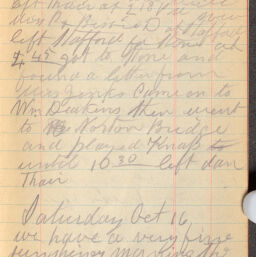 left
left Stafford for Stone at
4 45 got to Stone and
found a letter from
Miss Jenks Came on to
Wm Deakins then went
to Norton Bridge
and played Knap
until 10 30 left dan
Thair.
Saturday Oct 16
we have a very fine
morning